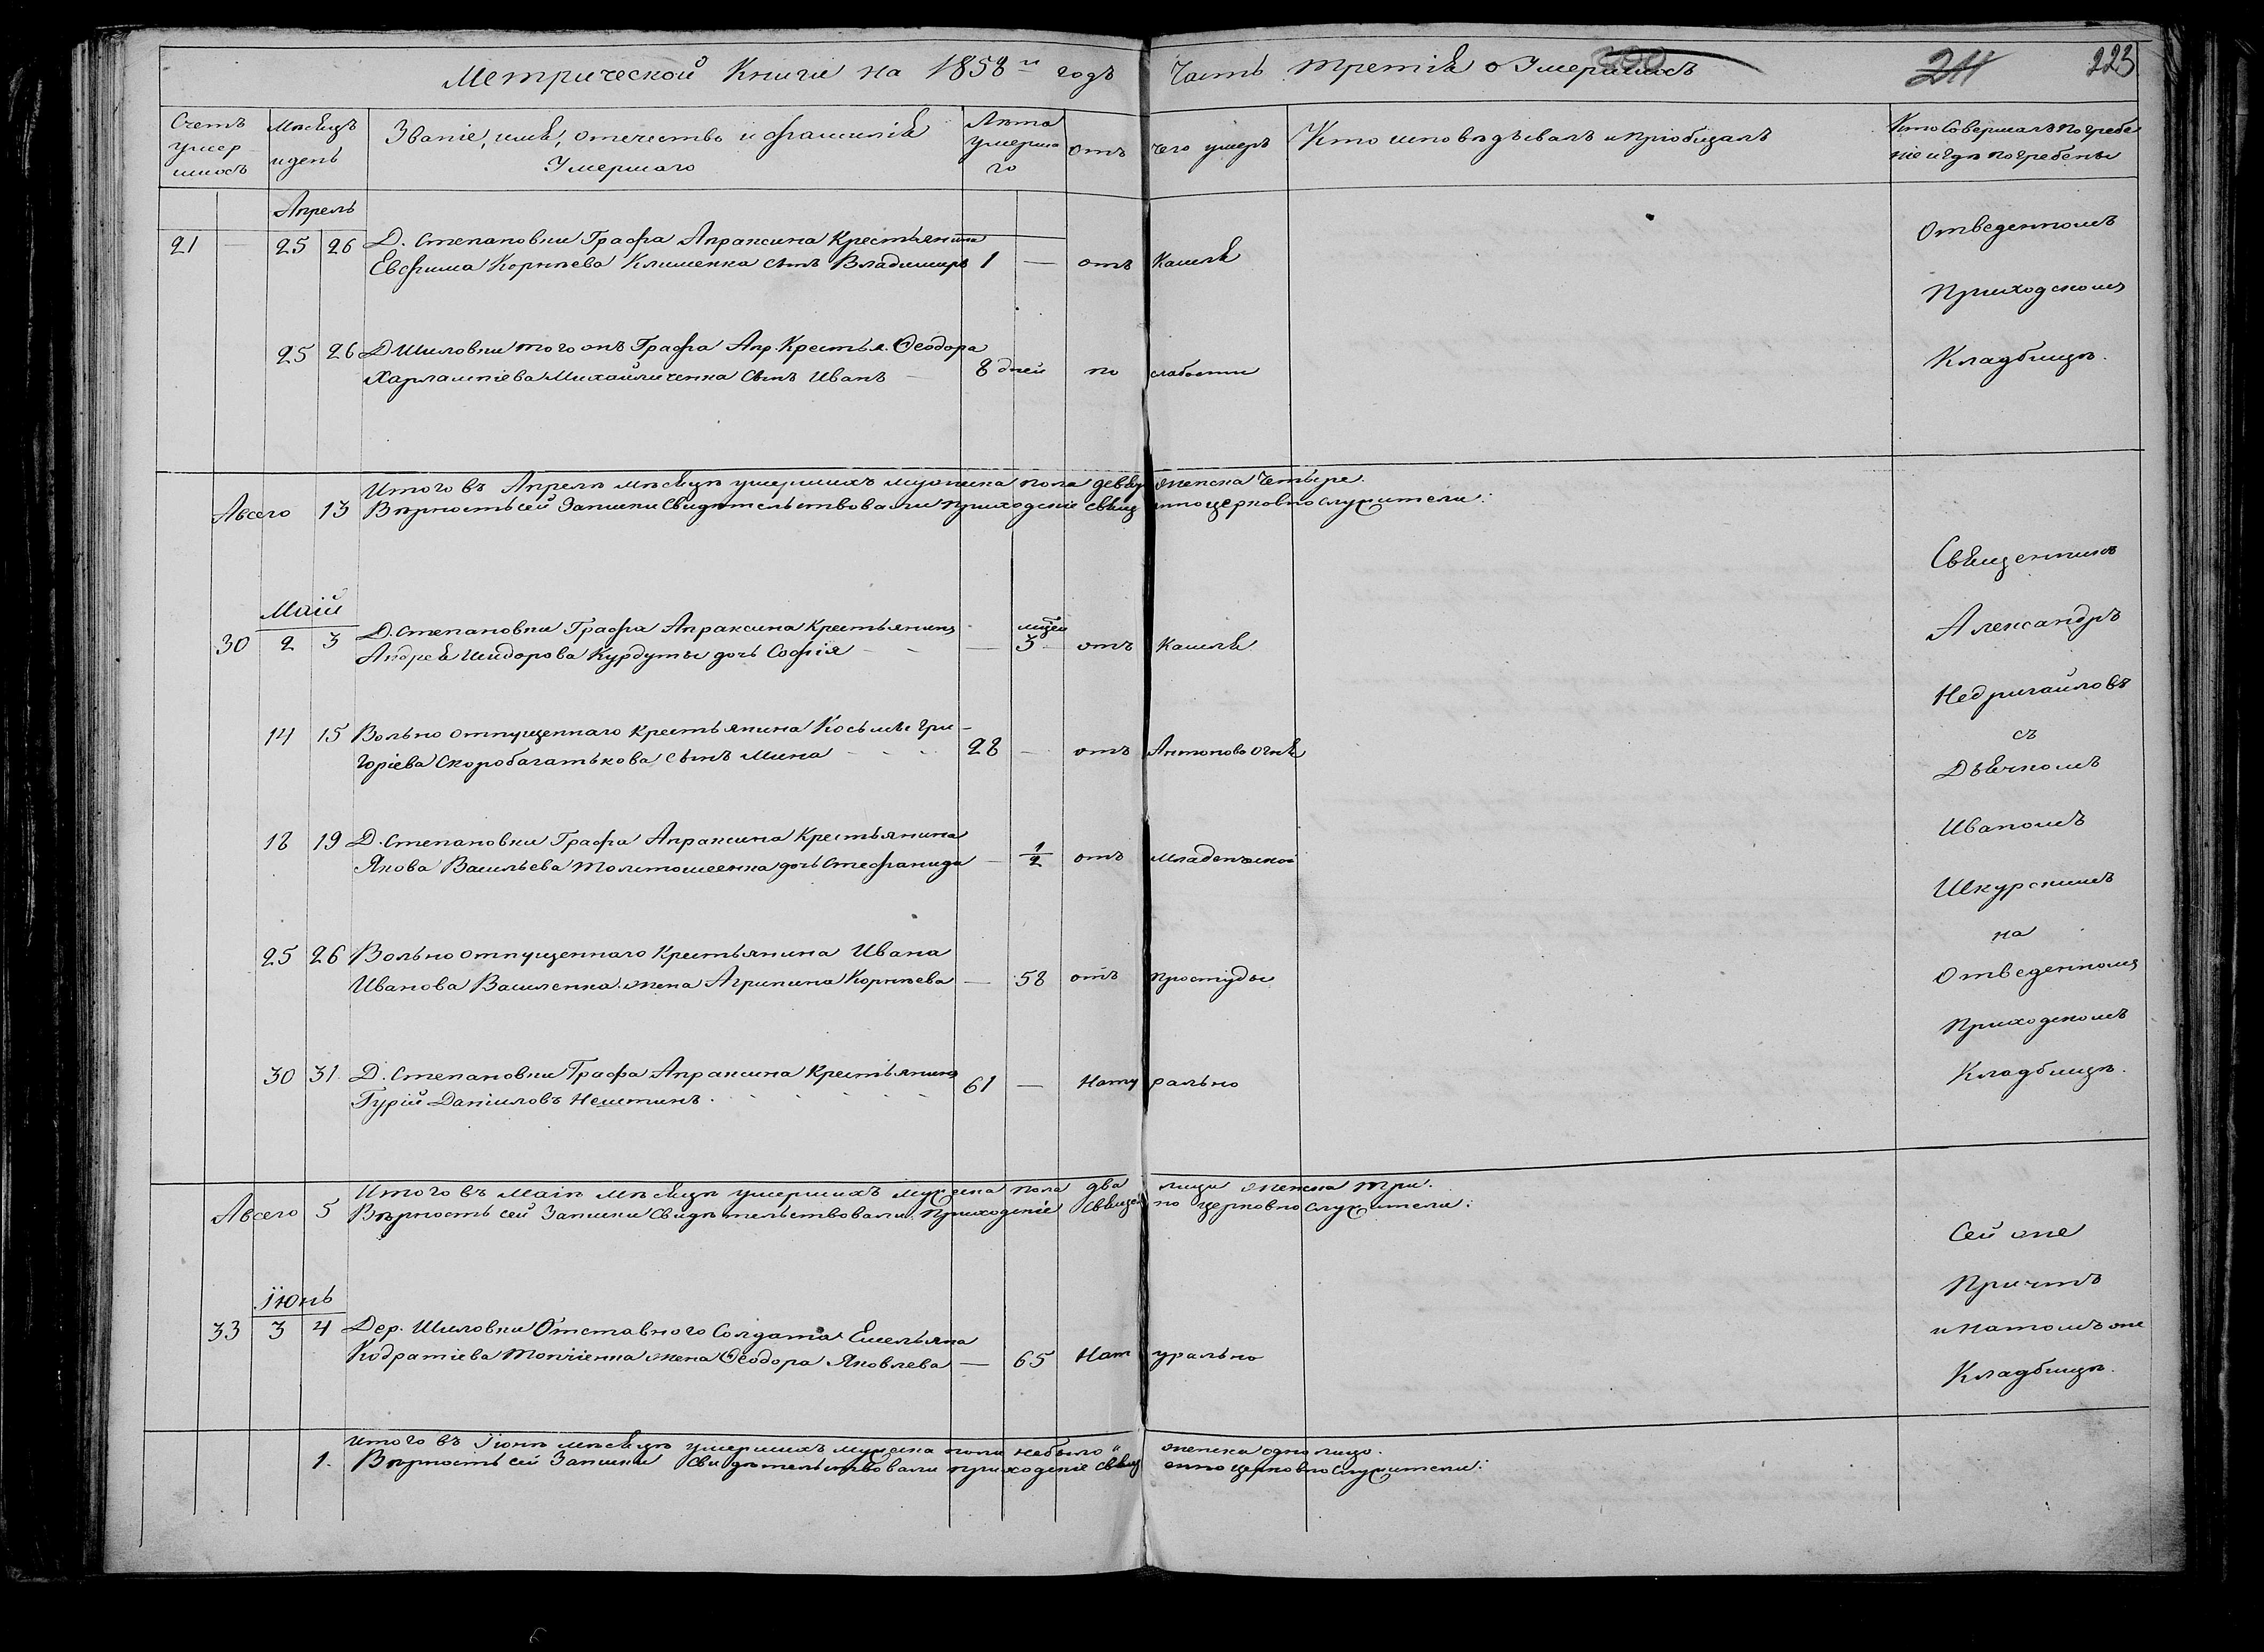 Метрической Книги на 1858й годъ Часть третія о Умершихъ
200 211 223
Счетъ умершихъ
Мѣсяцъ и день
Званіе, имя, отечество и фамилія Умершаго
Лѣта умершаго
отъ чего умеръ
Кто исповѣдывалъ и пріобщалъ
Кто Совершалъ погребеніе и гдѣ погребены
Апрель
21 25 26 Д. Степановки Графа Апраксина Крестьянина
Евфима Корнѣева Клименка сынъ Владимиръ 1 — отъ Кашля
25 26 Д Шиловки того онъ Графа Апр. Крестья. Ѳеодора
Харлампіева Михайличенка Сынъ Иванъ 8 дней по слабости
Отведенномъ
Приходскомъ
Кладбищѣ.
Итого въ Апрелѣ мѣсяцѣ умершихъ мужеска пола девять женска Четыре.
Авсего 13 Вѣрность сей Записки Свидѣтельствовали Приходскіе Священноцерковнослужители:
Маій
30 2 3 Д. Степановки Графа Апраксина Крестьянина
Андрея Исидорова Курдуты дочь Софія — мцей 3 отъ Кашля
14 15 Вольно отпущеннаго крестьянина Косьмы Гри-
горіева Скоробагатькова сынъ Мина 28 — отъ Антонова огня
18 19 Д. Степановки Графа Апраксина Крестьянина
Якова Васильева Толитошеенка дочь Стефанида — 1/2 отъ младенческой
25 26 Вольно отпущеннаго Крестьянина Ивана
Иванова Василенка жена Агрипина Корнѣева — 58 отъ простуды
30 31. Д. Степановки Графа Апраксина Крестьянинъ
Гурій Даніиловъ Нешетинъ. 61 — Натурально
Священникъ
Александръ
Недригайловъ
съ
Дьячкомъ
Иваномъ
Шкурскимъ
на
Отведенномъ
Приходскомъ
Кладбищѣ.
Итого въ Маіѣ мѣсяцѣ умершихъ мужеска пола два лици женска три.
Авсего 5 Вѣрность сей Записки Свидѣтельствовали Приходскіе Священноцерковнослужители:
Іюнь
33 3 4 Дер. Шиловки Отставного Солдата Емельяна
Кодратіева Топчіенка жена Ѳеодора Яковлева — 65 Натурально
Сей же
Причтъ
и натомъ же
Кладбищѣ.
Итого въ Іюнѣ мѣсяцѣ умершихъ мужеска пола небыло женска одно лицо.
1. Вѣрность сей Записки Свидѣтельствовали приходскіе священноцерковнослужители: